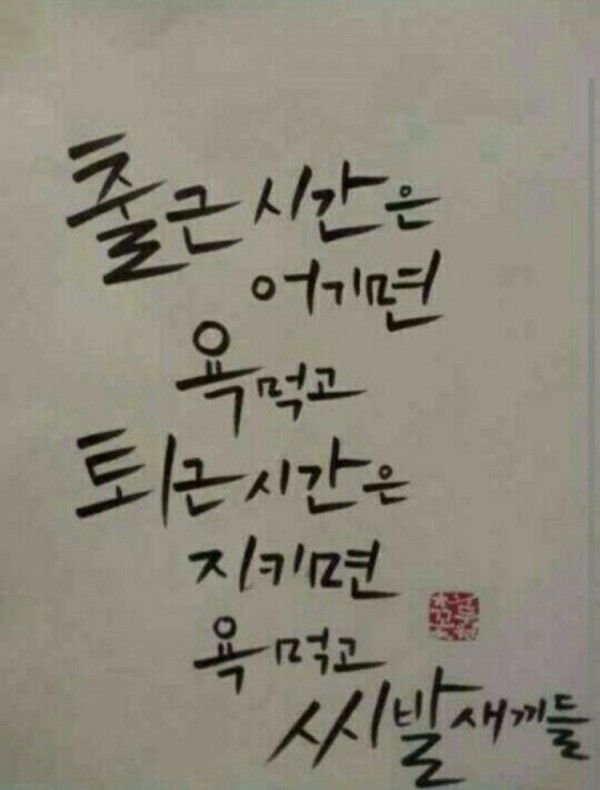 출근 시간은
어기면
욕먹고
퇴근시간은
지키면
욕 먹고
씨발새끼들